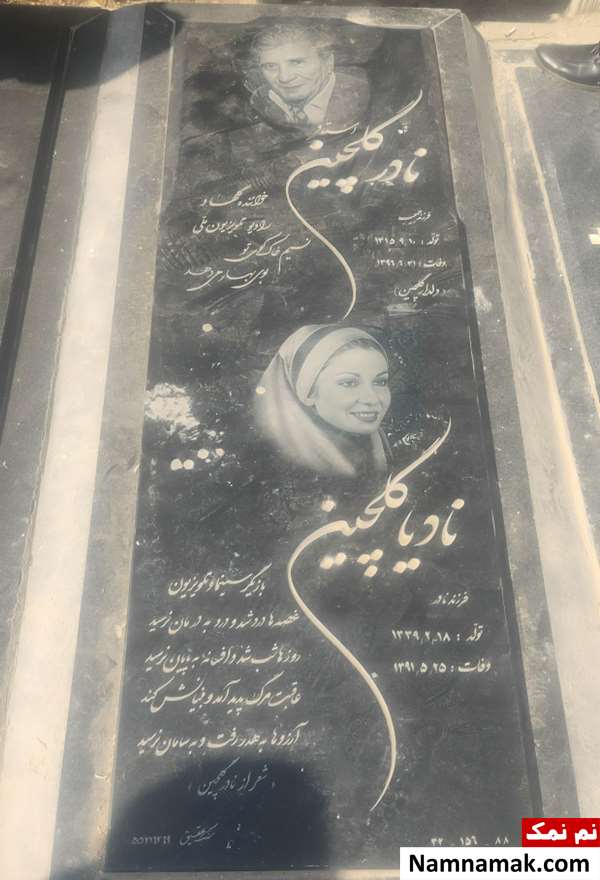 استاد
نادر گلچین
فرزند حبیب
تولد : ۱۳۱۵٫۹٫۱۰
وفات : ۱۳۹۶٫۶٫۳۱
(دلدار گلچین)
خواننده گلها و
رادیو تلویزیون ملی
نسیم خاک کوی تو
بوی بهار می دهد
نادیا گلچین
فرزند نادر
تولد : ۱۳۳۹٫۲٫۱۸
وفات : ۱۳۹۱٫۵٫۲۵
بازیگر سینما و تلویزیون
غصه ها درد شد و درد به درمان نرسید
روزها شب شد و افسانه به پایان نرسید
عاقبت مرگ پدید آمد و
آرزوها به هدر رفت و به سامان نرسید
(شعر از نادر گلچین)
سنگ عقیق
۳۲ ۱۵۶ ۸۸
نم نمک
Namnamak.com